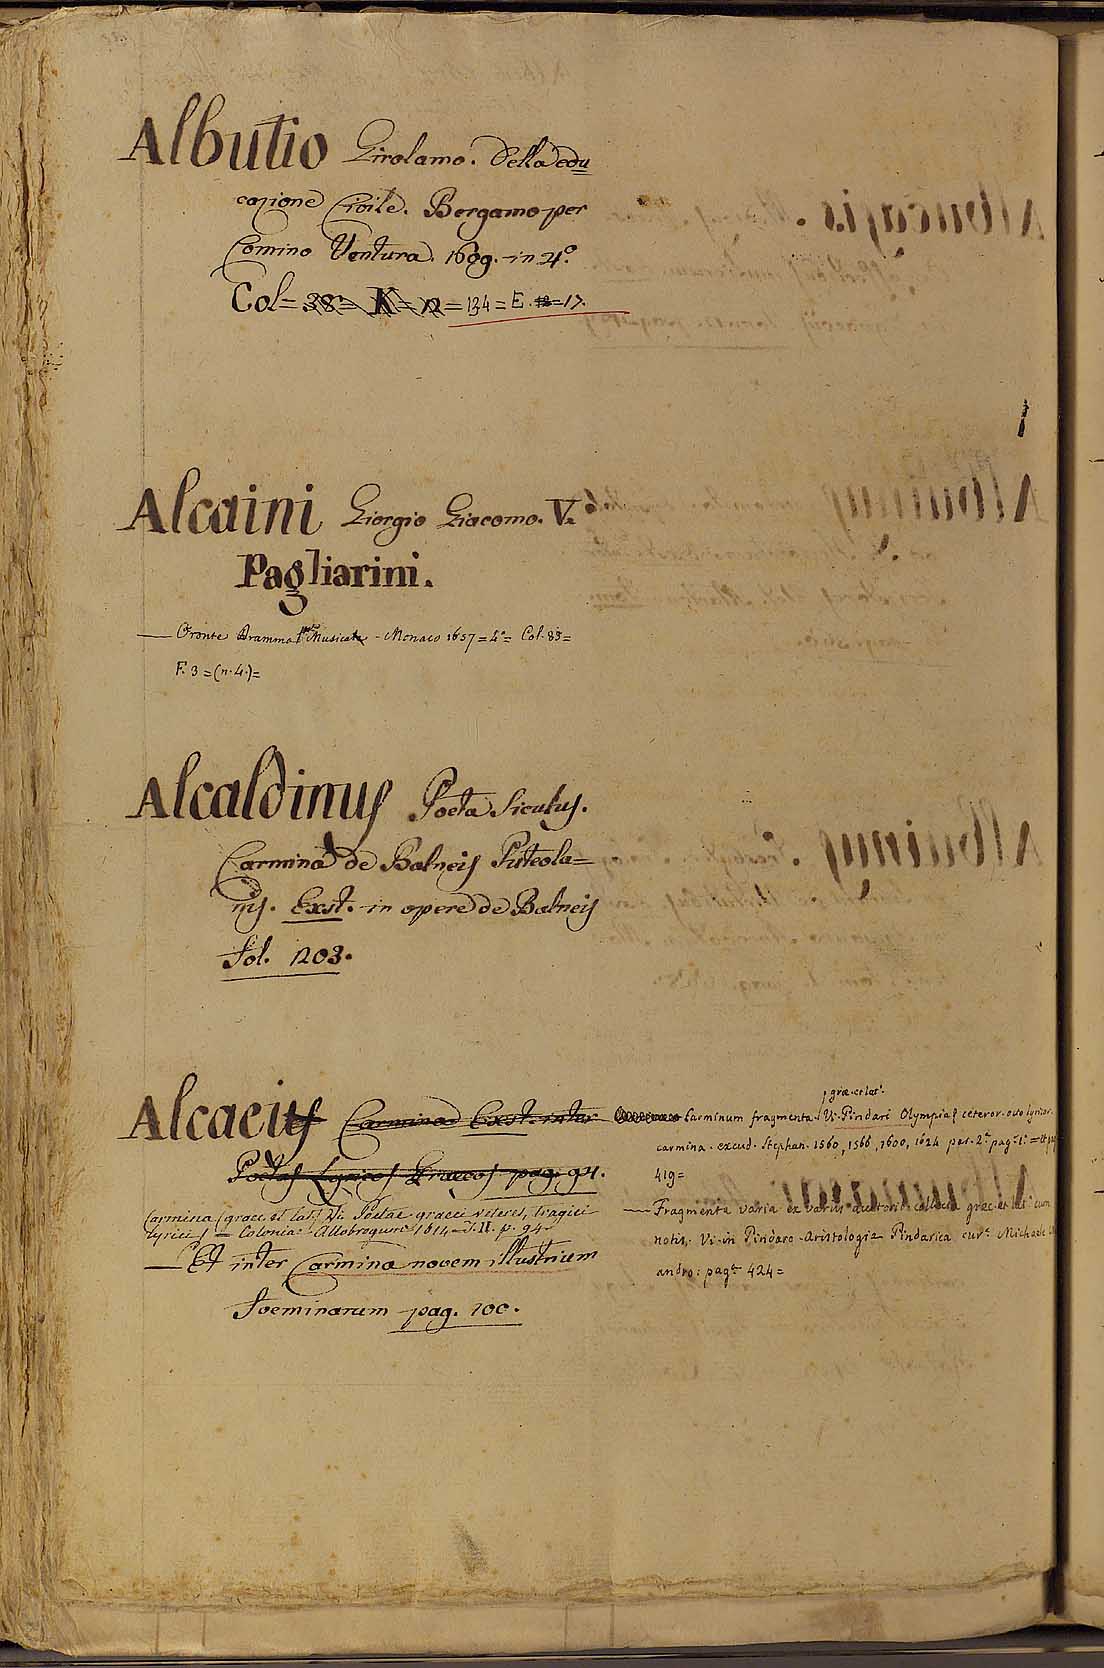 Albutio Girolamo. Della edu
cazione Civile. Bergamo per
Comino Ventura. 1609. in 4.°
Col= 38= K= 12= 134= E. 17.
Alcaini Giorgio Giacomo. V.
Pagliarini.
— Oronte Dramma Musicale - Monaco 1657=4°= Col. 83=
F. 3=(n. 4.)=
Alcaldinus Poeta Siculus.
Carmina de Balneis Puteola=
nis. Exst. in opere de Balneis
fol. 203.
Alcaeius Carmina Exst. inter
Poetas Lyricos Graecos pag. 94.
Carmina (graec. et lat.) Vi. Poetae graeci veteres, Tragici
Lyrici = Coloniae Allobrogum 1614 T. II. p. 94
— Et inter Carmina novem illustrium
Foeminarum pag. 100.
graec. et lat.
Carminum fragmenta Vi. Pindari Olympia ceteror. octo lyricor.
carmina. excud. Stephan. 1560, 1566, 1600, 1624 par. 2.ª pag.
419=
— Fragmenta varia ex variis auctorib. collecta graec. et lat. cum
notis. Vi. in Pindaro Aristologia Pindarica cur. Michaele
andro: pag. 424=